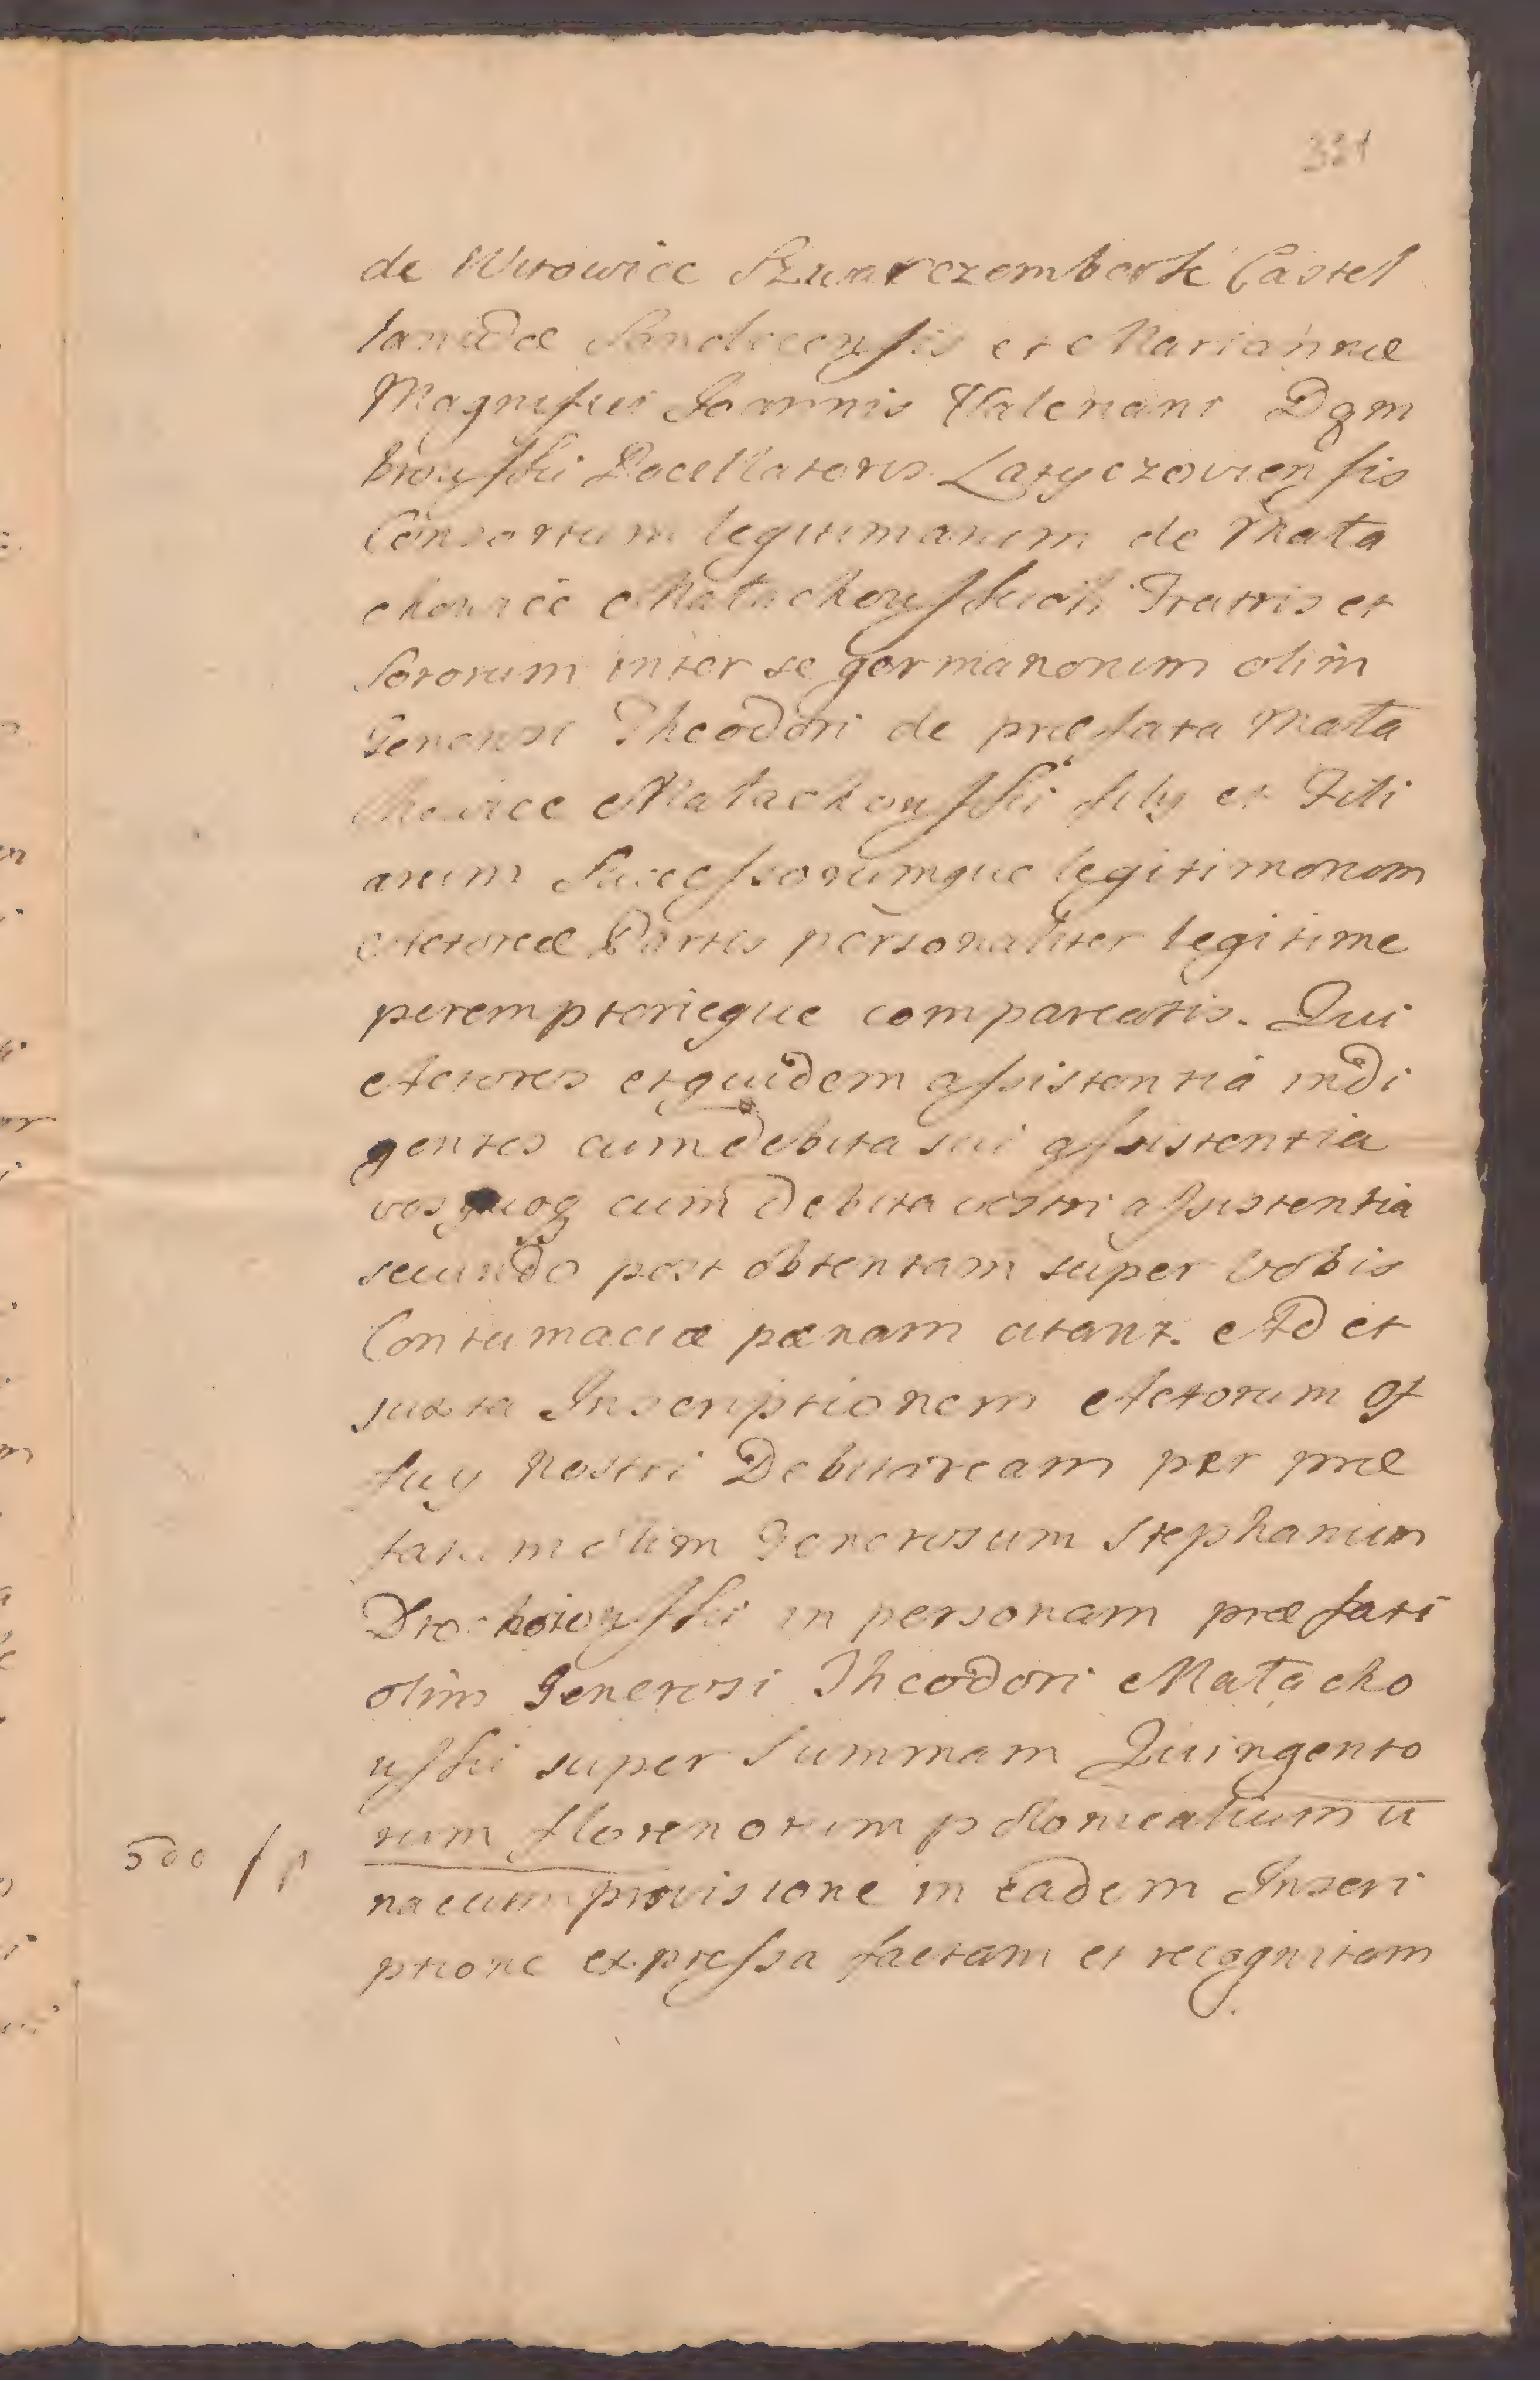 331
de Witowice Szwarczemberk Castel
lanidæ Sandecensis et Mariannæ
Magnifici Joannis Valeriani Dąm
browski Pocillatoris Latyczoviensis
Consortum legitimarum de Mała
chowice Małachowskich Fratris et
Sororum inter se germanorum olim
Generosi Theodori de præfata Mała
chowice Małachowski filij et Fili
arum Successorumque legitimorum
Actoreæ Partis personaliter legitime
peremptorieque compareatis. Qui
Actores etquidem assistentiá indi
gentes cum debita sui assistentia
vos quoq cum debita vestri assistentia
secundo post obtentam super Vobis
Contumaciæ pænam citant. Ad et
juxta Inscriptionem Actorum Of
ficij Nostri Debitoream per præ
fatum olim Generosum Stephanum
Drohoiowski in personam præfati
olim Generosi Theodori Małacho
wski super Summam Quingento
rum florenorum polonicalium u
500 f p
nacum provisione in eadem Inscri
ptione expressa factam et recognitam